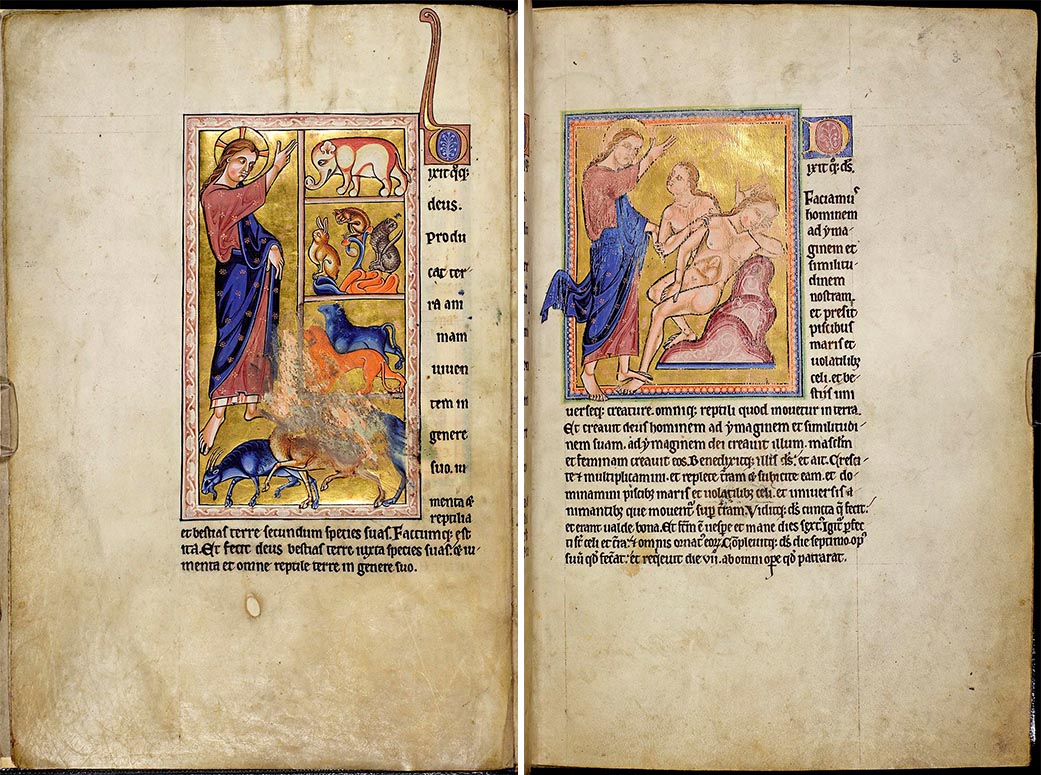 Dixitq;
deus.
Produ
cat ter-
ra am
mam
uiuen
tem in
genere
suo. iu
menta &
reptilia
et bestias terre secundum species suas. Factumq; est
ita. Et fecit deus bestias terre iuxta species suas. & iu-
menta et omne reptile terre in genere suo.
3.
Dixit q; ds̄.
Faciamus
hominem
ad ẏma-
ginem et
similitu-
dinem
nostram
et presit
piscibus
maris et
uolatilibꝫ
celi. et be-
stiis uni
uerseq; creature. omniq; reptili quod mouetur in terra.
Et creauit deus hominem ad ẏmaginem et similitudi-
nem suam. ad ẏmaginem dei creauit illum. masclm̄
et feminam creauit eos. Benedixitq; illis ds̄. et ait. Cresci-
te & multiplicamini. et replete t̄ram & subicite eam. et do-
minamini piscibꝫ maris et uolatilibꝫ celi. et uniuersis a-
nimantibꝫ que mouent᷑ sup̄ t̄ram. Viditq; ds̄ cuncta q̄ fecit.
et erant ualde bona. Et fc̄m ē uesꝑe et mane dies sext᷑. Igit᷑ ꝑfec
ti st̄ celi et t̄ra. & omnis ornat᷑ eoꝝ. Cōpleuitq; ds̄ die septimo op᷑
suū qd̄ fec̄at. et req̇euit die vii. ab omni oꝑe qd̄ patrarat.